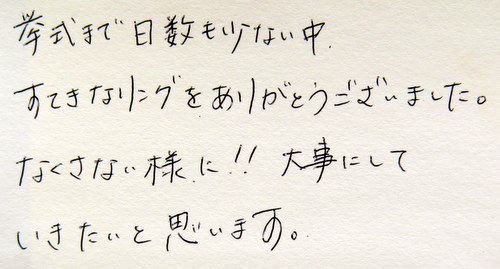 挙式まで日数も少ない中、
すてきなリングをありがとうございました。
なくさない様に!! 大事にして
いきたいと思います。